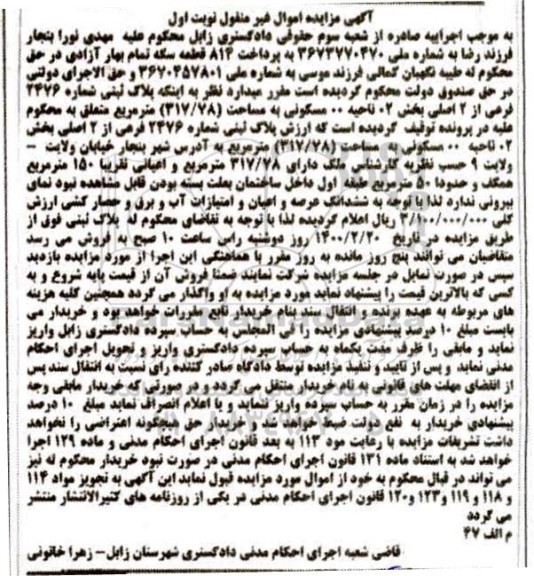 آگهی مزایده اموال غیر منقول نوبت اول
به موجب اجراییه صادره از شعبه سوم حقوقی دادگستری زابل محکوم علیه مهدی نورا بنجار
فرزند رضا به شماره ملی ۳۶۷۳۷۷۰۴۷۰ به پرداخت ۸۱۴ قطعه سکه تمام بهار آزادی در حق
محکوم له طیبه نگهبان کمالی فرزند موسی به شماره ملی ۳۶۷۰۴۵۷۸۰۱ و حق الاجرای دولتی
در حق صندوق دولت محکوم گردیده است مقرر میدارد نظر به اینکه پلاک ثبتی شماره ۲۴۷۶
فرعی از ۲ اصلی بخش ۰۲ ناحیه ۰۰ مسکونی به مساحت (۳۱۷/۷۸) مترمربع متعلق به محکوم
علیه در پرونده توقیف گردیده است که ارزش پلاک ثبتی شماره ۲۴۷۶ فرعی از ۲ اصلی بخش
۰۲ ناحیه ۰۰ مسکونی به مساحت (۳۱۷/۷۸) مترمربع به آدرس شهر بنجار خیابان ولایت –
ولایت ۹ حسب نظریه کارشناس ملک دارای ۳۱۷/۷۸ مترمربع و اعیانی تقریبا ۱۵۰ مترمربع
همکف و حدودا ۵۰ مترمربع طبقه اول داخل ساختمان بعلت بسته بودن قابل مشاهده نبود نمای
بیرونی ندارد لذا با توجه به ششدانگ عرصه و اعیان و امتیازات آب و برق و حصار کشی ارزش
کلی ۳/۱۰۰/۰۰۰/۰۰۰ ریال اعلام گردیده لذا با توجه به تقاضای محکوم له پلاک ثبتی فوق از
طریق مزایده در تاریخ ۱۴۰۰/۲/۲۰ روز دوشنبه راس ساعت ۱۰ صبح به فروش می رسد
متقاضیان می توانند پنج روز مانده به روز مقرر با هماهنگی این اجرا از مورد مزایده بازدید
سپس در صورت تمایل در جلسه مزایده شرکت نمایند ضمنا فروش آن از قیمت پایه شروع و به
کسی که بالاترین قیمت را پیشنهاد نماید مورد مزایده به او واگذار می گردد همچنین کلیه هزینه
های مربوطه به عهده برنده و انتقال سند بنام خریدار تابع مقررات خواهد بود و خریدار می
بایست مبلغ ۱۰ درصد پیشنهادی مزایده را فی المجلس به حساب سپرده دادگستری زابل واریز
نماید و مابقی را ظرف مدت یکماه به حساب سپرده دادگستری واریز و تحویل اجرای احکام
مدنی نماید و پس از تایید و تنفیذ مزایده توسط دادگاه صادر کننده رای نسبت به انتقال سند پس
از انقضای مهلت های قانونی به نام خریدار منتقل می گردد و در صورتی که خریدار مابقی وجه
مزایده را در زمان مقرر به حساب سپرده واریز ننماید و یا اعلام انصراف نماید مبلغ ۱۰ درصد
پیشنهادی خریدار به نفع دولت ضبط خواهد شد و خریدار حق هیچگونه اعتراضی را نخواهد
داشت تشریفات مزایده با رعایت مود ۱۱۳ به بعد قانون اجرای احکام مدنی و ماده ۱۲۹ اجرا
خواهد شد به استناد ماده ۱۳۱ قانون اجرای احکام مدنی در صورت نبود خریدار محکوم له نیز
می تواند در قبال محکوم به خود از اموال مورد مزایده قبول نماید این آگهی به تجویز مواد ۱۱۴
و ۱۱۸ و ۱۱۹ و۱۲۳ و۱۲۰ قانون اجرای احکام مدنی در یکی از روزنامه های کثیرالانتشار منتشر
می گردد
م الف ۴۷
قاضی شعبه اجرای احکام مدنی دادگستری شهرستان زابل- زهرا خاتونی